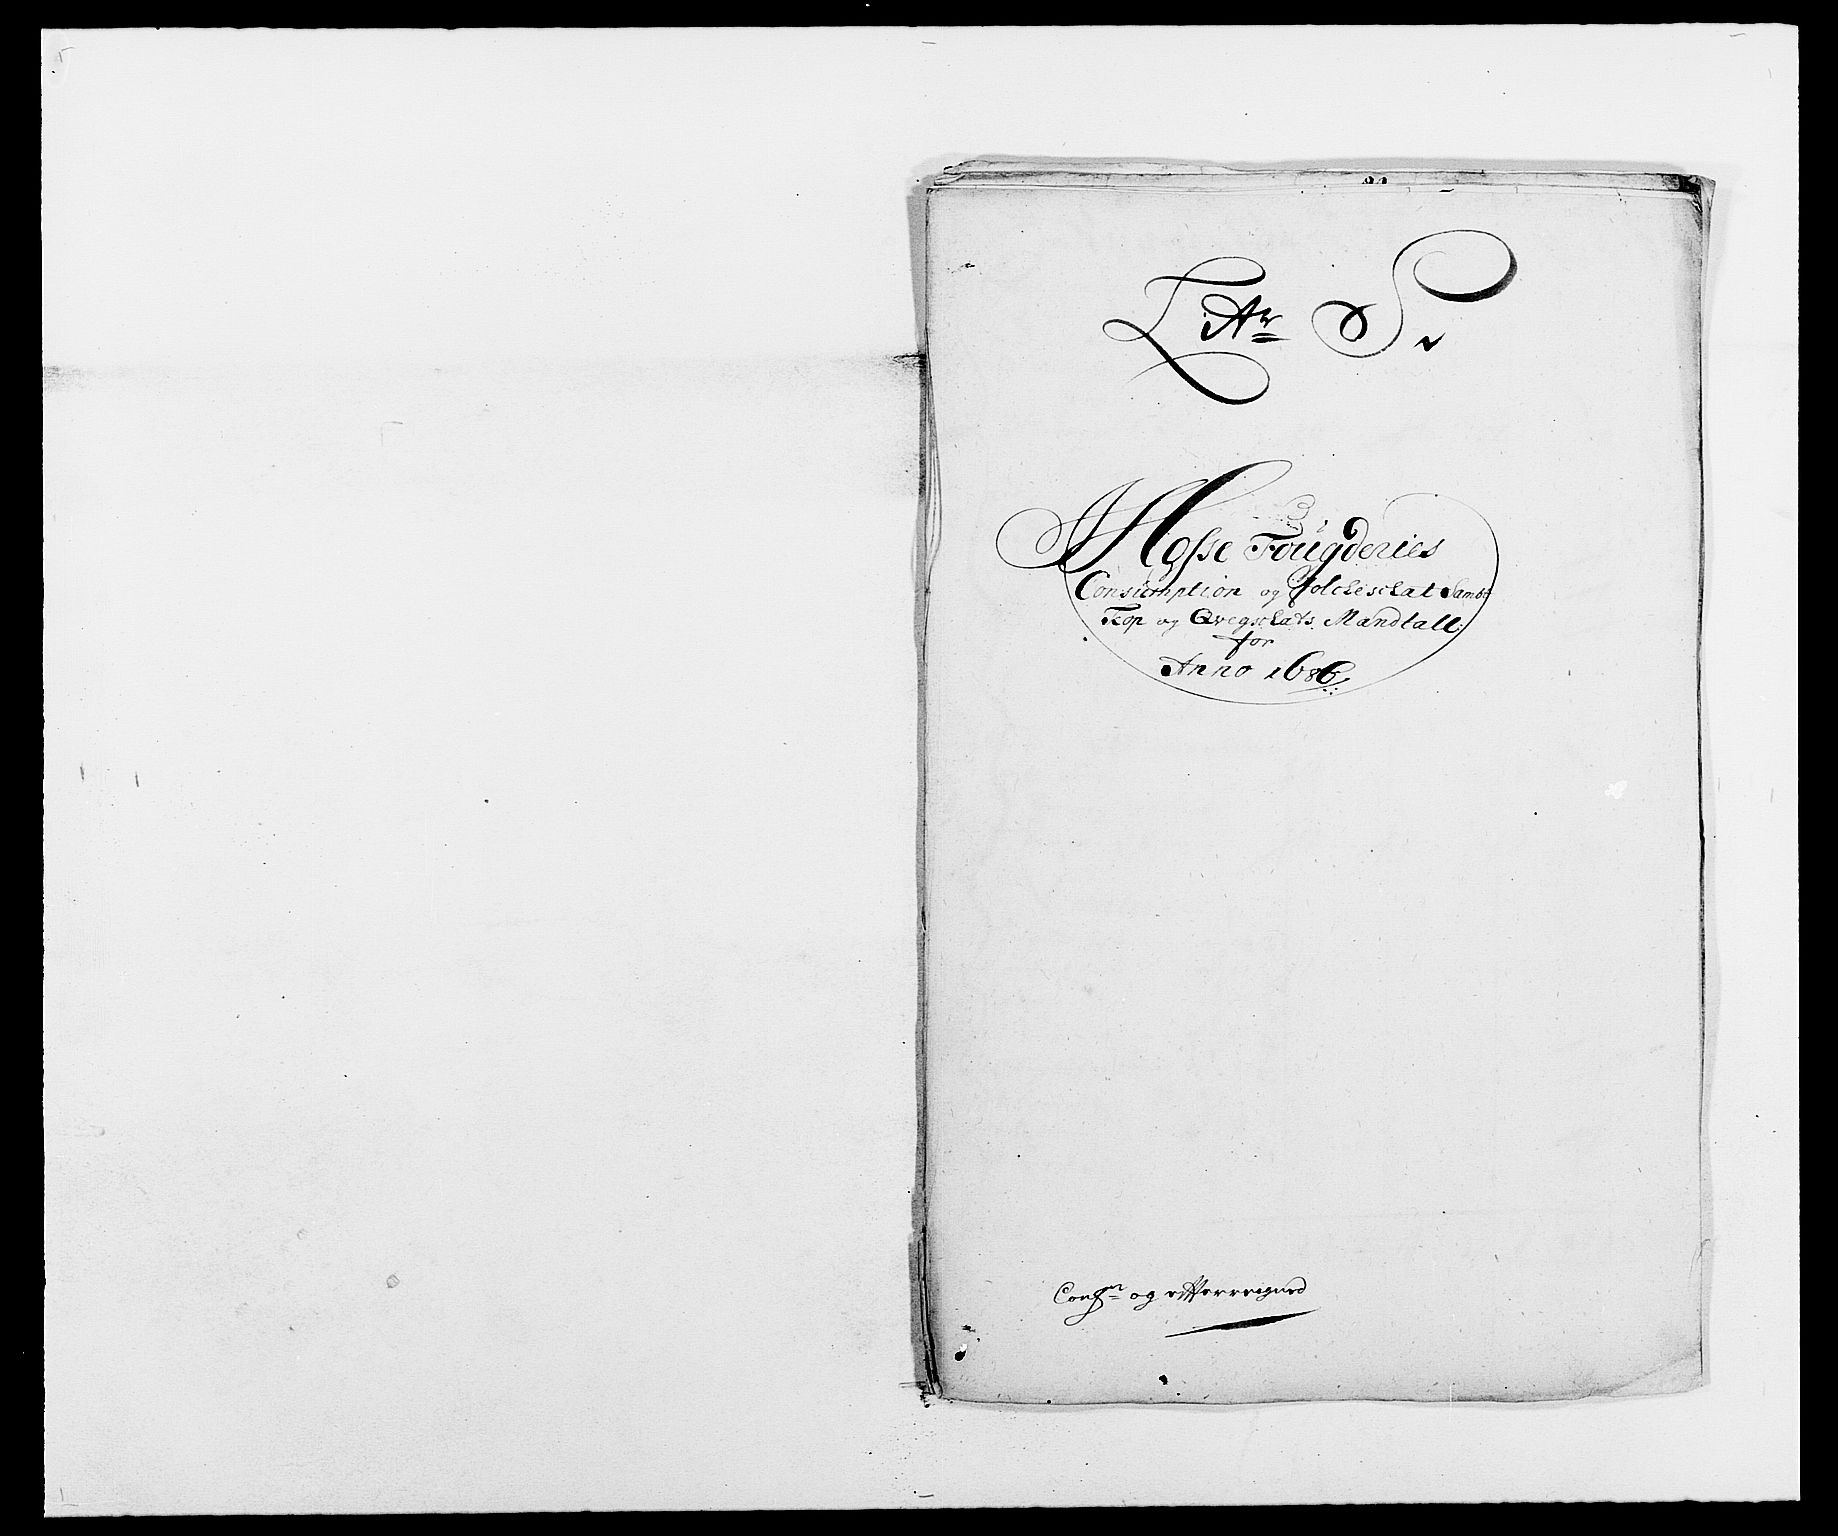 Litr S.
Mosse Fougderies
Consumption og Folcheschat Sambt
Kop og Qvegschats Mandtall
for
Anno 1686
og efterreigned